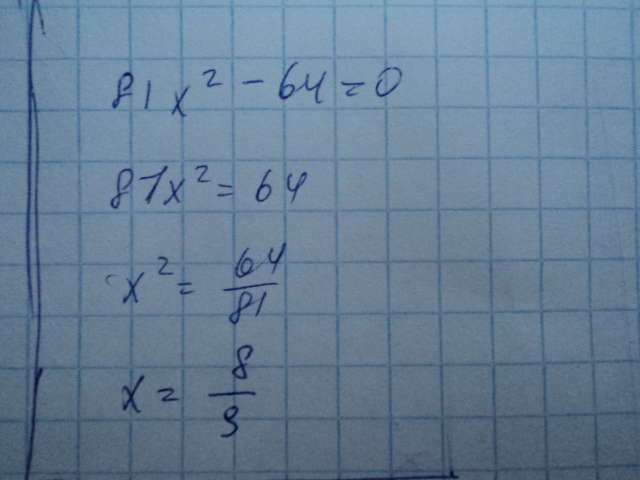 81x² - 64 = 0
81x² = 64
x² = 64/81
x = 8/9